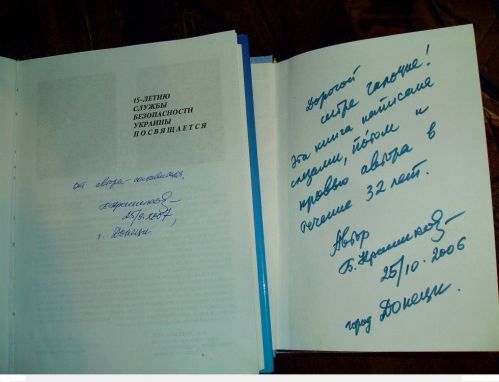 15-ЛЕТИЮ
СЛУЖБЫ
БЕЗОПАСНОСТИ
УКРАИНЫ
ПОСВЯЩАЕТСЯ
от автора-
25/
2007,
г. Донецк
Дорогой
сестре Галочке!
Эта книга написана
слезами, потом и
кровью автора в
течение 32 лет.
Автор
Б.
25/10-2006
город Донецк.